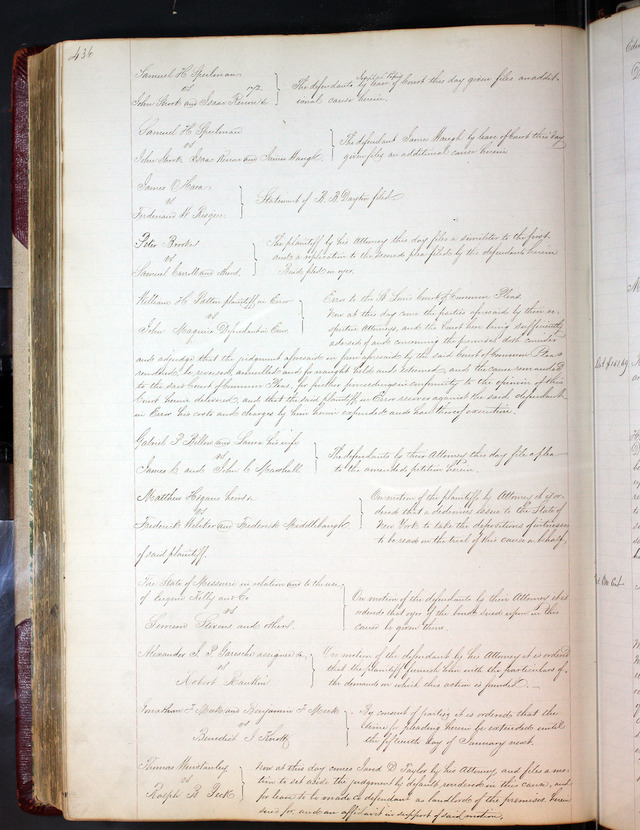 436
Samuel H Speelman
vs
John Shock and Isaac
The defendants by leave of Court this day given files an addit-
ional cause herein.
Samuel H Speelman
vs
John Shock Isaac and James Waugh
The defendant James Waugh by leave of Court this day
given files an additional cause herein
James O'Hara
vs
Ferdinand W Risque
Statement of B. B. Dayton filed
Peter Brooks
vs
Samuel Carroll and
The plaintiff by his Attorney this day files a similiter to the first
and a replication to the second plea filed by the defendants herein
filed on oyer.
William H Patton plaintiff in Error
vs
John Maguire Defendant in Error
Error to the St Louis Court of Common Pleas.
Now at this day come the parties aforesaid by their re-
spective Attorneys, and the Court here being sufficiently
advised of and concerning the premises doth consider
and adjudge that the judgment aforesaid in form aforesaid by the said Court of Common Pleas
rendered, be reversed, annulled and for naught held and esteemed, and the cause remanded
to the said Court of Common Pleas, for further proceedings in conformity to the opinion of this
Court herein delivered, and that the said plaintiff in Error recover against the said defendant
in Error his costs and charges by him herein expended and have thereof execution.
Gabriel P and his wife
vs
James C and John C Marshall
The defendants by their Attorney this day file a plea
to the amended petition herein.
Matthew Hogans
vs
Frederick Webster and Frederick Middlebaugh
On motion of the plaintiff by Attorney it is or-
dered that a dedimus issue to the State of
New York to take the depositions of witnesses
to be read on the trial of this cause on behalf
of said plaintiff.
The State of Missouri in relation and to the use
of Eugene Kelly and Co
vs
and others.
On motion of the defendants by their Attorney it is
ordered that oyer of the bond sued upon in this
cause be given them.
Alexander J. P. Garesche assignee &
vs
Robert Rankin
On motion of the defendant by his Attorney it is ordered
that the plaintiff furnish him with the particulars of
the demand on which this action is founded.
Jonathan F Meek and Benjamin F Meek
vs
Benedict J Knott
By consent of parties it is ordered that the
time for pleading herein be extended until
the fifteenth day of January next.
Thomas Winstanley
vs
Ralph B Peck
Now at this day comes Jared D Taylor by his Attorney, and files a mo-
tion to set aside the judgment by default rendered in this cause, and
for leave to be made a defendant as landlord of the premises herein
sued for, and an affidavit in support of said motion.